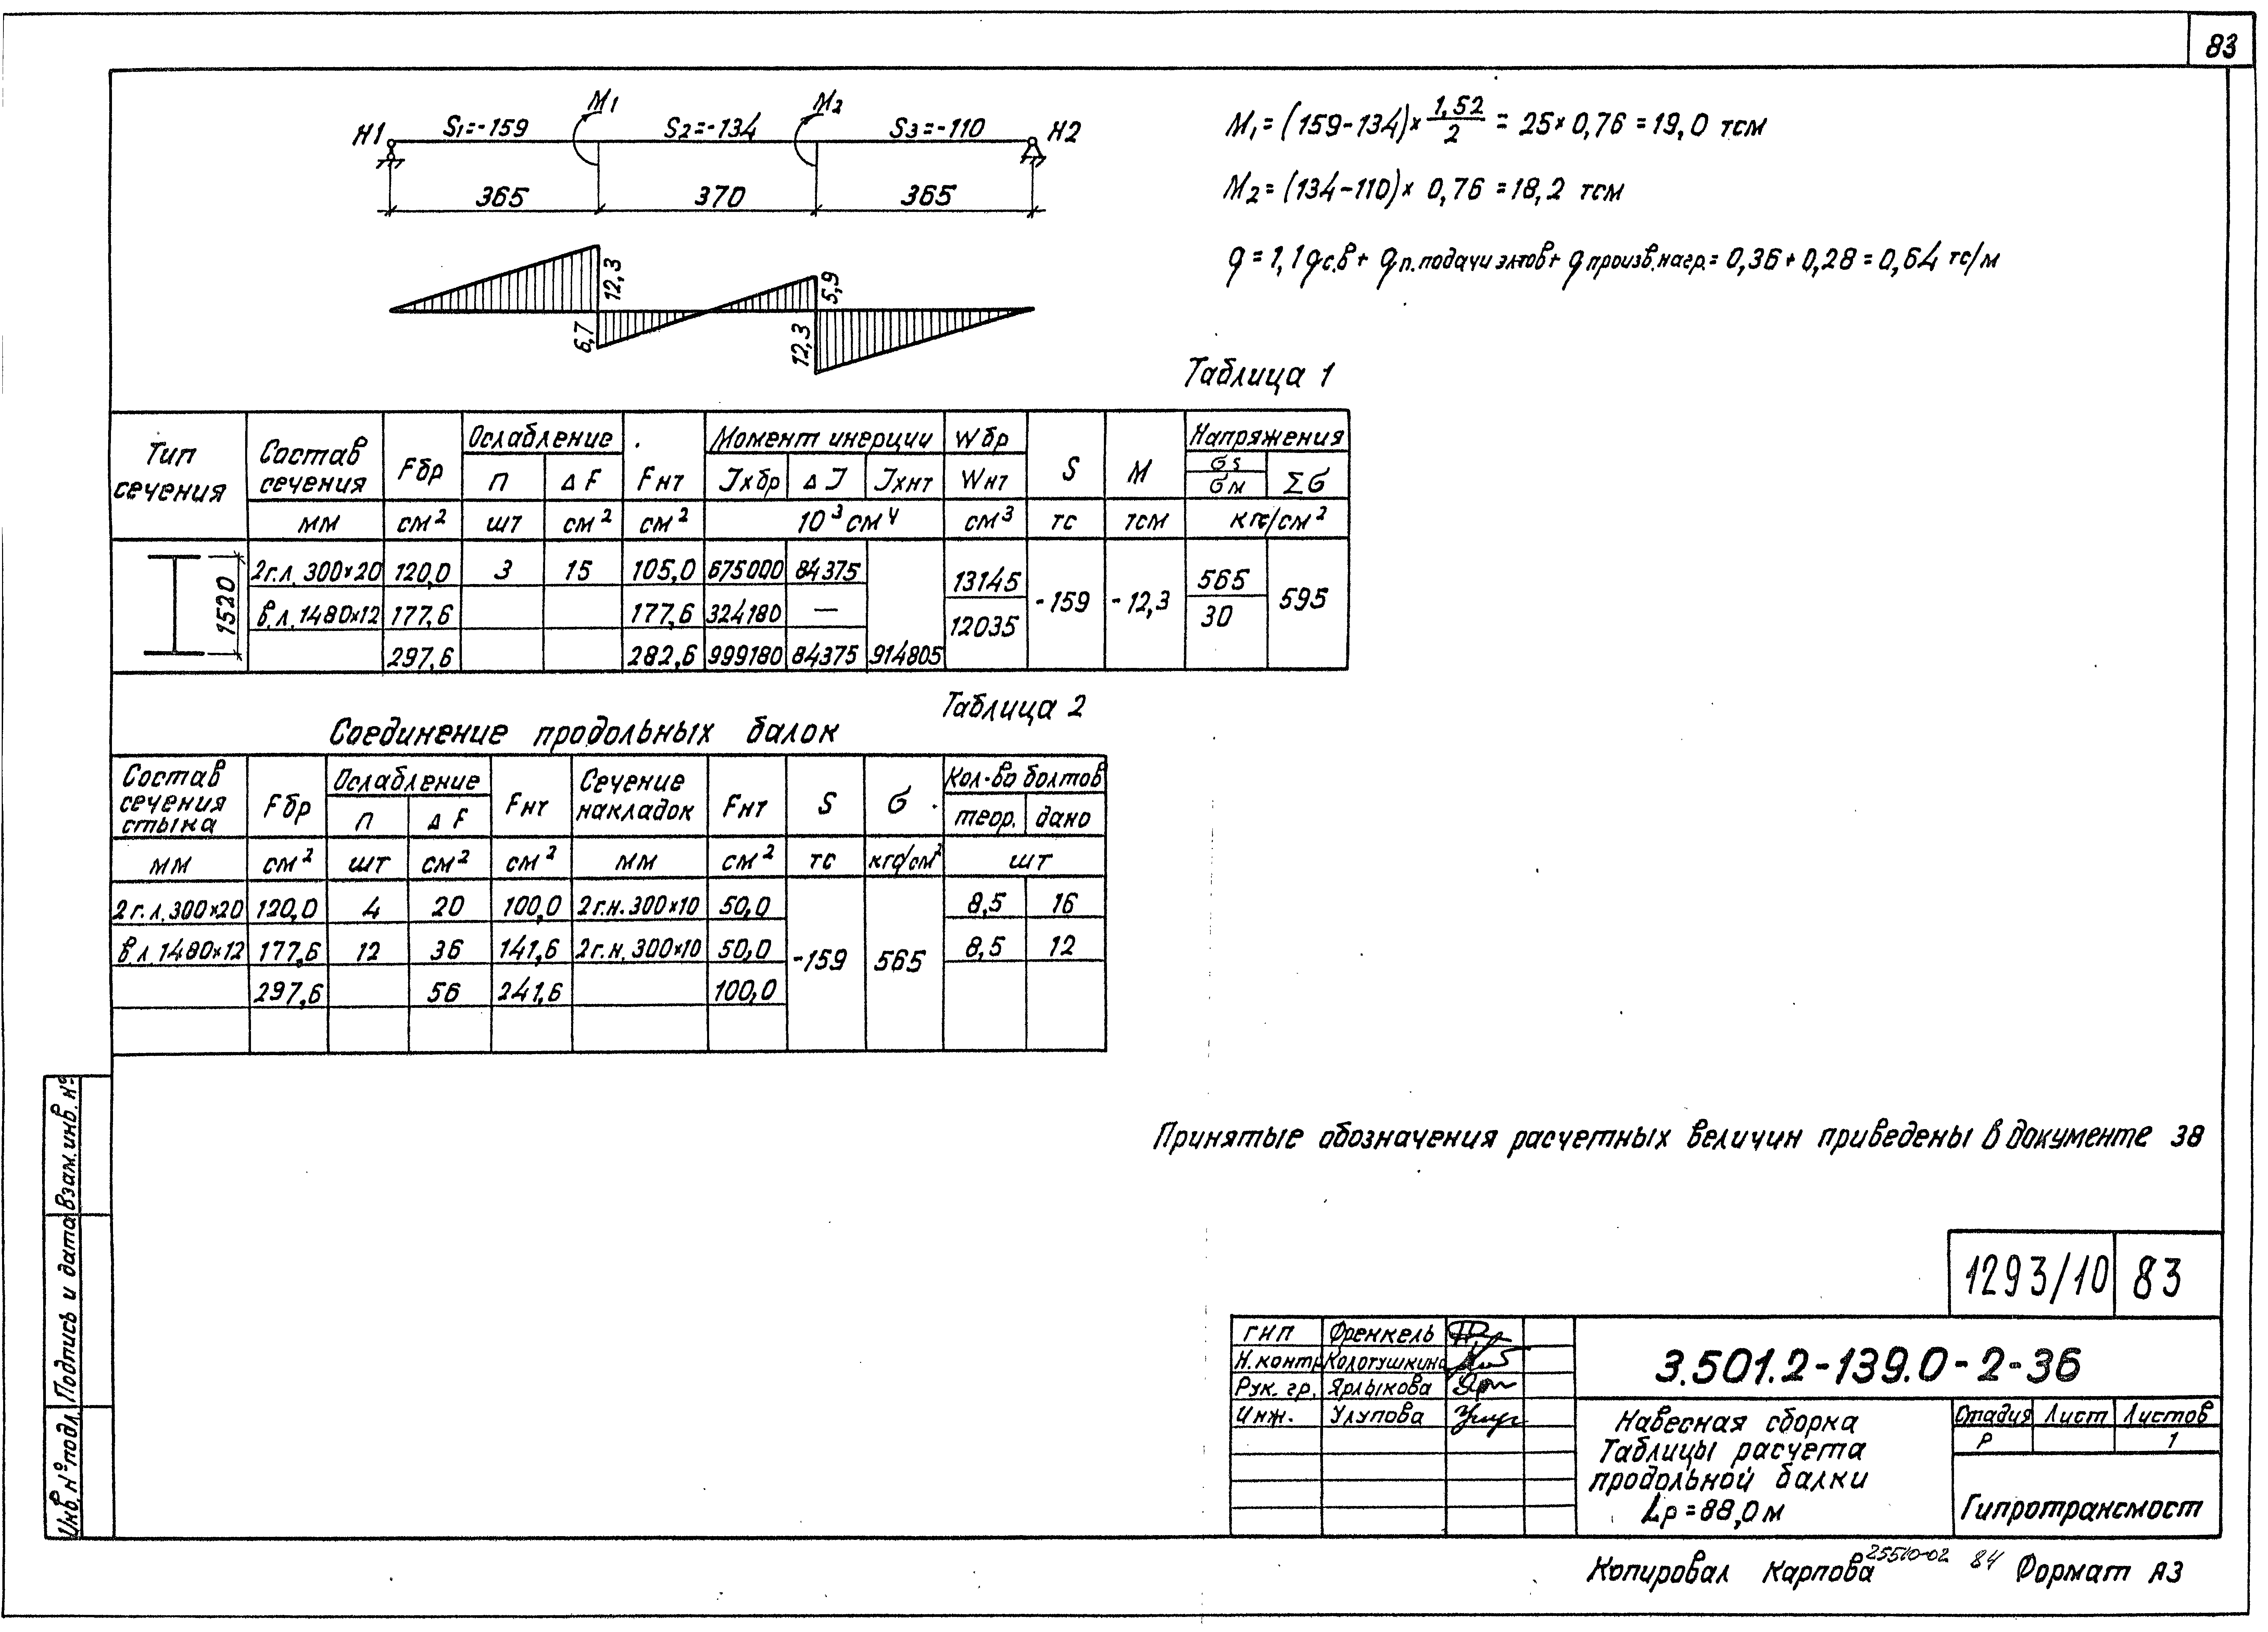 83
M₁ M₂
H1 S₁=-159 S₂=-134 S₃=-110 H2
365 370 365
12,3 6,7 5,9 12,3
M₁=(159-134)×1,52/2=25×0,76=19,0 тсм
M₂=(134-110)× 0,76=18,2 тсм
q=1,1qс.в+qп.подачи эл-тов+qпроизв.нагр.=0,36+0,28=0,64 тс/м
Таблица 1
Тип сечения | Состав сечения | Fбр | Ослабление | Fнт | Момент инерции | Wбр | S | M | Напряжения
п | ΔF | Jхбр | ΔJ | Jхнт | Wнт | σs | σм | Σσ
мм | см² | шт | см² | см² | 10³см⁴ | см³ | тс | тсм | кгс/см²
1520
2г.л.300×20 | 120,0 | 3 | 15 | 105,0 | 675000 | 84375 | 13145 | 565
в.л.1480×12 | 177,6 | 177,6 | 324180 | — | 12035 | -159 | -12,3 | 30 | 595
297,6 | 282,6 | 999180 | 84375 | 914805
Таблица 2
Соединение продольных балок
Состав сечения стыка | Fбр | Ослабление | Fнт | Сечение накладок | Fнт | S | σ | Кол-во болтов
п | ΔF | теор. | дано
мм | см² | шт | см² | см² | мм | см² | тс | кгс/см² | шт
2г.л.300×20 | 120,0 | 4 | 20 | 100,0 | 2г.н.300×10 | 50,0 | 8,5 | 16
в.л.1480×12 | 177,6 | 12 | 36 | 141,6 | 2г.н.300×10 | 50,0 | -159 | 565 | 8,5 | 12
297,6 | 56 | 241,6 | 100,0
Принятые обозначения расчетных величин приведены в документе 38
Взам.инв.№
Подпись и дата
Инв.№подл.
1293/10 83
ГИП Френкель
Н.контр Колотушкина
Рук. гр. Ярлыкова
Инж. Улупова
3.501.2-139.0-2-36
Навесная сборка
Таблицы расчета
продольной балки
Lр=88,0м
Стадия Лист Листов
Р 1
Гипротрансмост
Копировал Карпова 25510-02 84 Формат А3